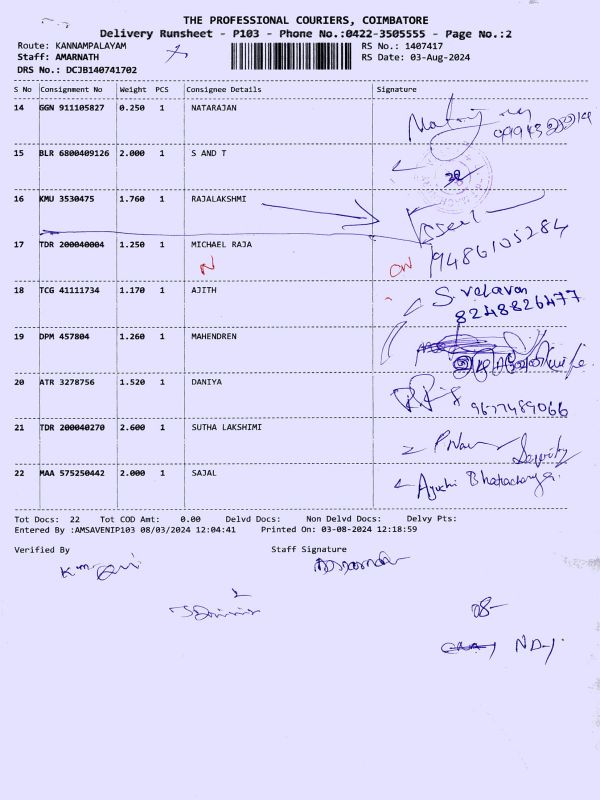 THE PROFESSIONAL COURIERS, COIMBATORE
Delivery Runsheet - P103 - Phone No.:0422-3505555 - Page No.:2
Route: KANNAMPALAYAM RS No.: 1407417
Staff: AMARNATH RS Date: 03-Aug-2024
DRS No.: DCJB140741702
S No Consignment No Weight PCS Consignee Details Signature
14 GGN 911105827 0.250 1 NATARAJAN
15 BLR 6800409126 2.000 1 S AND T
16 KMU 3530475 1.760 1 RAJALAKSHMI
17 TDR 200040004 1.250 1 MICHAEL RAJA 9486105284
N ON
18 TCG 41111734 1.170 1 AJITH S. velavan
8248826477
19 DPM 457804 1.260 1 MAHENDREN
20 ATR 3278756 1.520 1 DANIYA 9677489066
21 TDR 200040270 2.600 1 SUTHA LAKSHIMI Security
22 MAA 575250442 2.000 1 SAJAL
Tot Docs: 22 Tot COD Amt: 0.00 Delvd Docs: Non Delvd Docs: Delvy Pts:
Entered By :AMSAVENIP103 08/03/2024 12:04:41 Printed On: 03-08-2024 12:18:59
Verified By Staff Signature